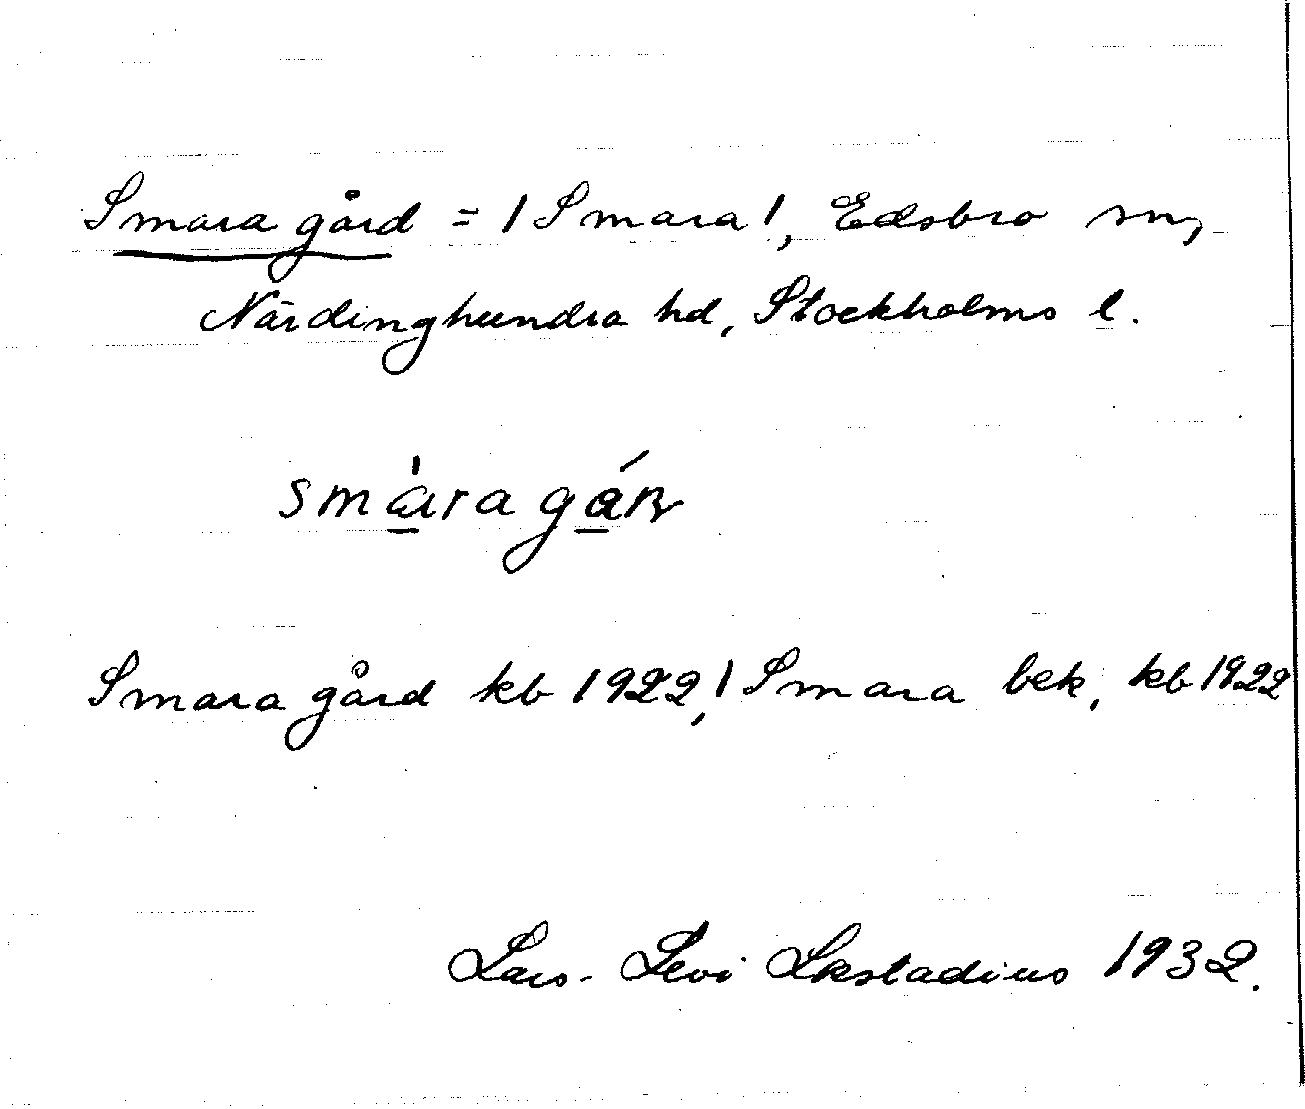 Smara gård = / Smara /, Edsbro sn,
Närdinghundra hd, Stockholms l.
smàragáɴ
Smara gård kb 1922, / Smara bek, kb 1922
Lars-Levi Læstadius 1932.